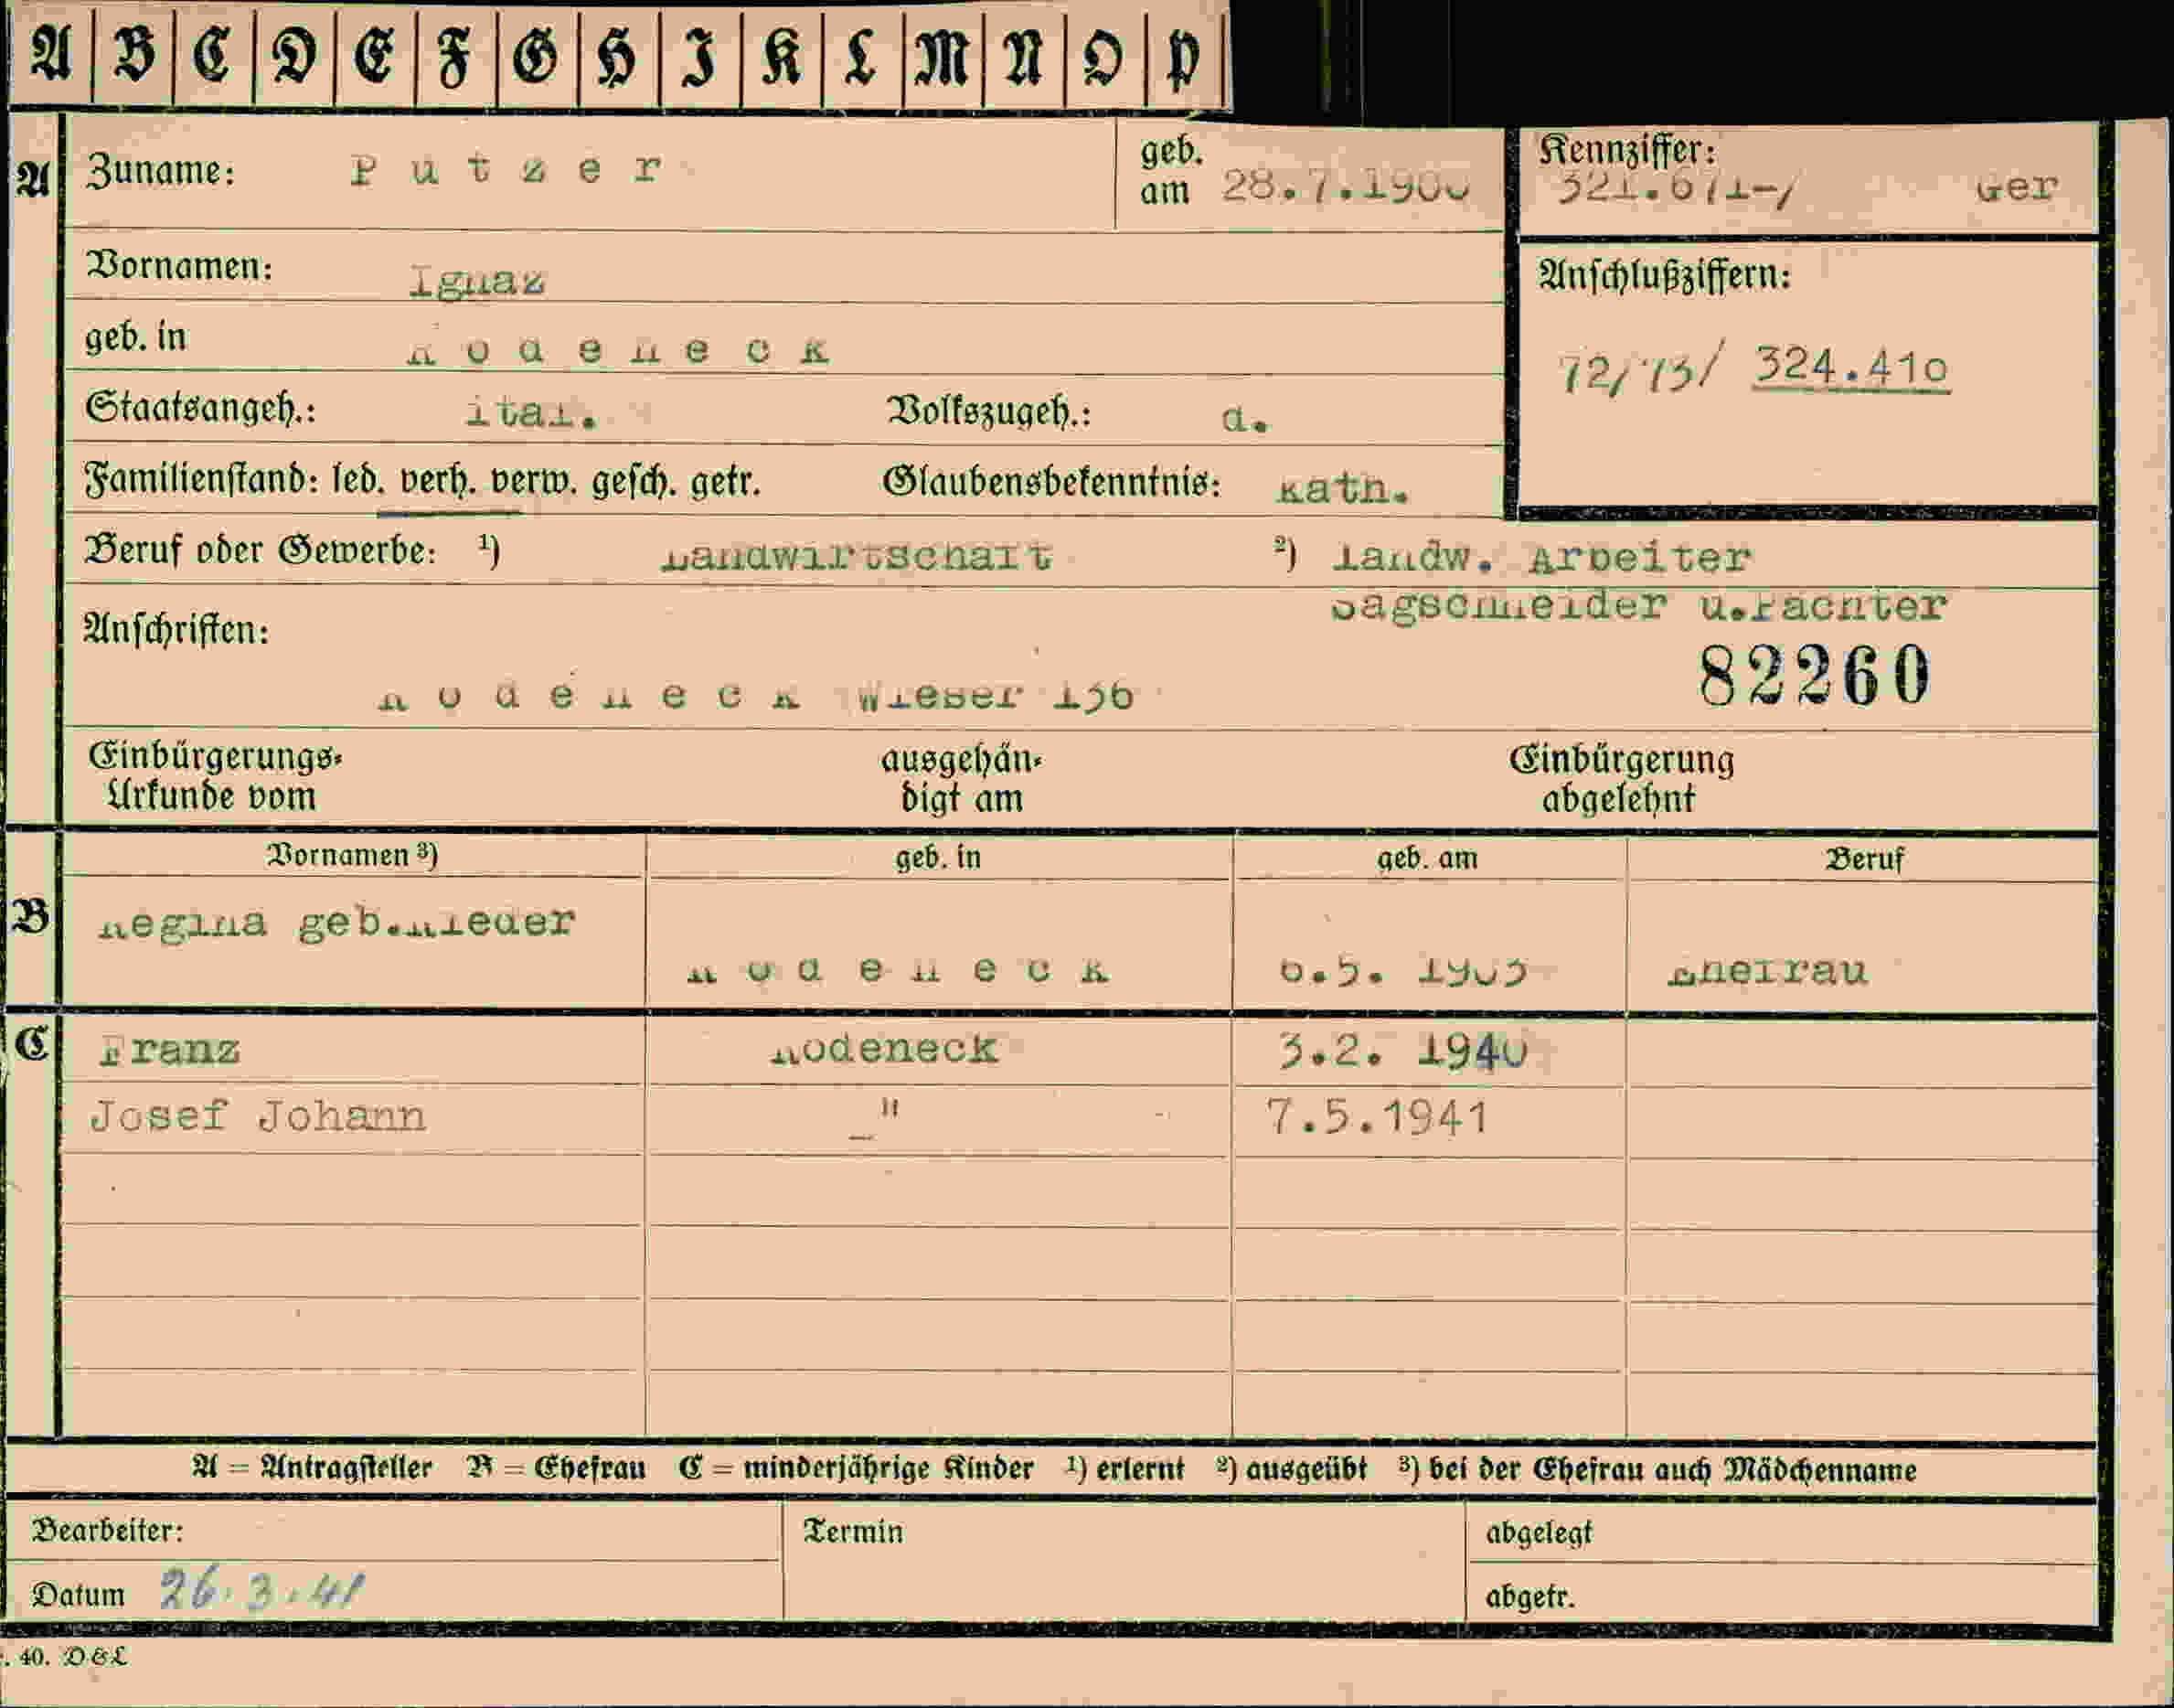 A B C D E F G H I K L M N O P
A
Zuname: Putzer
geb. am 28.7.1900
Kennziffer:
Ger
Vornamen: Ignaz
Anschlußziffern:
72/73/ 324.410
geb. in Rodeneck
Staatsangeh.: ital. Volkszugeh.: d.
Familienstand: led. verh. verw. gesch. getr. Glaubensbekenntnis: kath.
Beruf oder Gewerbe: ¹) Landwirtschaft ²) landw. Arbeiter
Sagschneider u.Pächter
Anschriften:
Rodeneck Wieser 136
82260
Einbürgerungs- Urkunde vom
ausgehän- digt am
Einbürgerung abgelehnt
Vornamen ³) geb. in geb. am Beruf
B
Regina geb.
Rodeneck Ehefrau
C
Franz Rodeneck 3.2. 1940
Josef Johann _" 7.5.1941
A = Antragsteller B = Ehefrau C = minderjährige Kinder ¹) erlernt ²) ausgeübt ³) bei der Ehefrau auch Mädchenname
Bearbeiter: Termin abgelegt
Datum 26.3.41 abgetr.
. 40. D & L